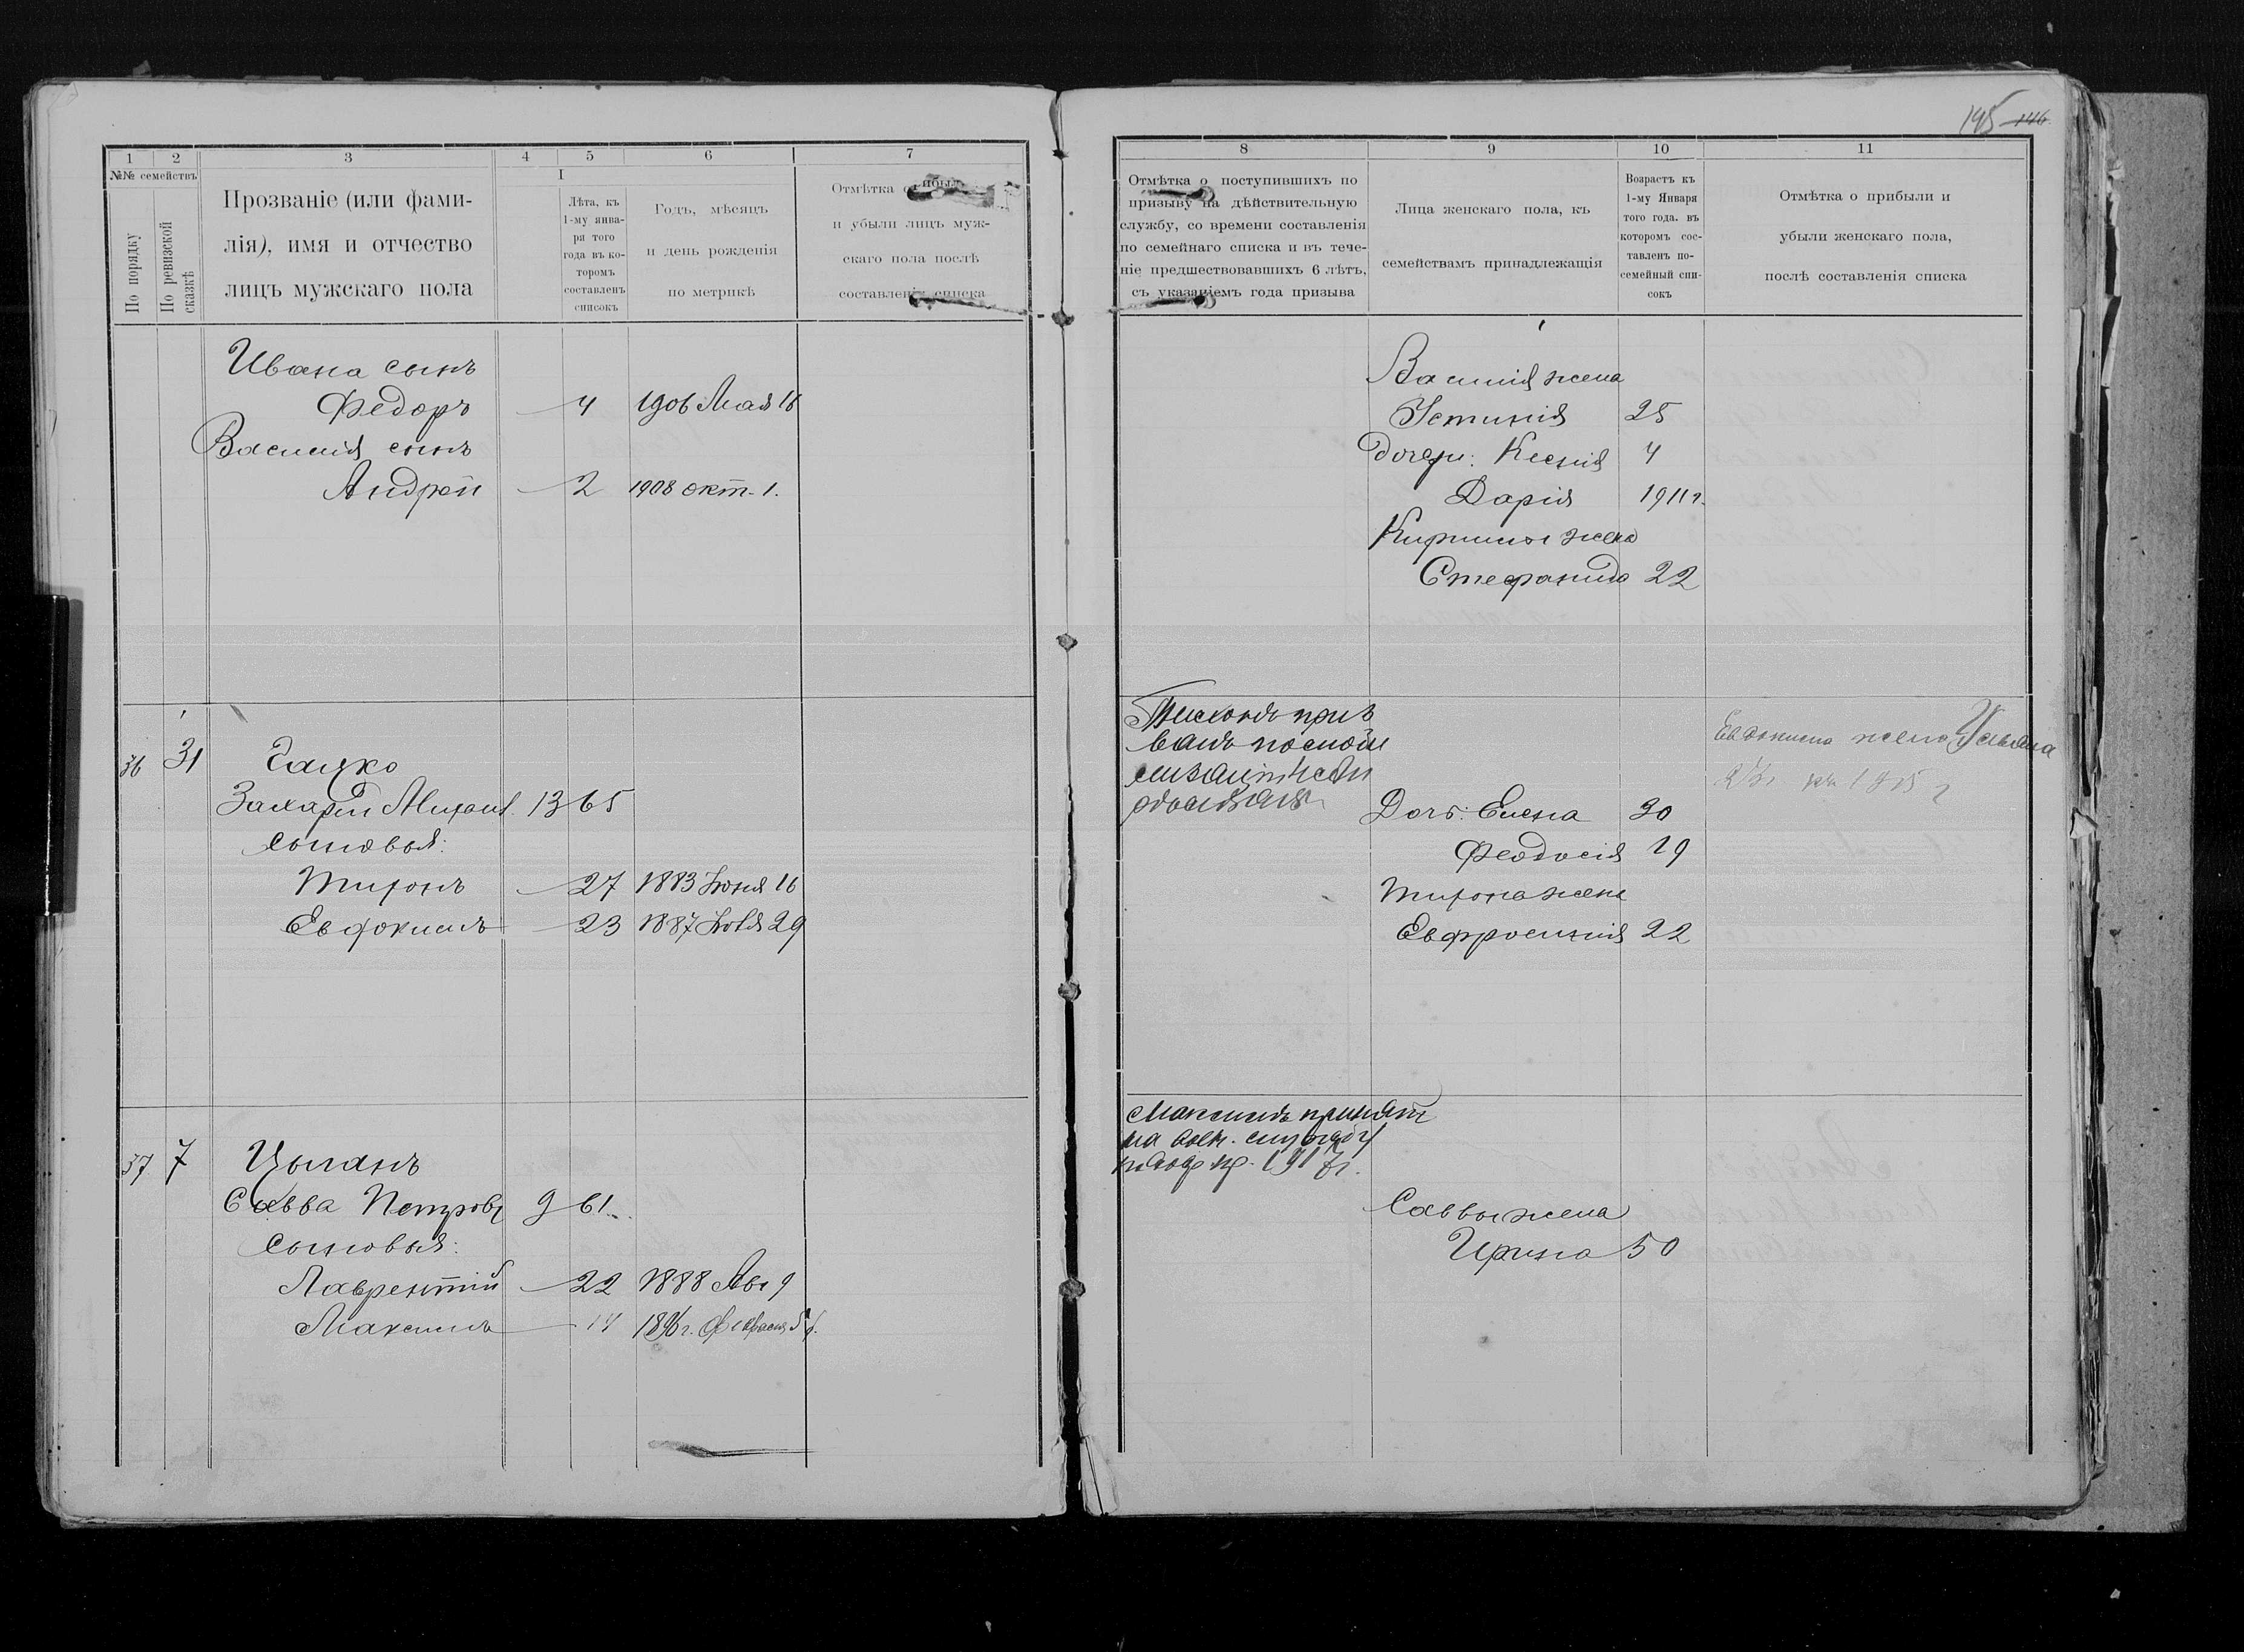 1 2 3 4 5 6 7
№№ семействъ
По порядку
По ревизской сказкѣ
Прозваніе (или фами-
лія), имя и отчество
лицъ мужскаго пола
I
Лѣта, къ
1-му янва-
ря того
года въ ко-
торомъ
составленъ
списокъ
Годъ, мѣсяцъ
и день рожденія
по метрикѣ
Отмѣтка
и убыли лицъ муж-
скаго пола послѣ
составленія списка
Ивана сынъ
Федоръ 4 1906 Мая 16
Василія сынъ
Андрей 2 1908 окт. 1.
36 31 Гацко
Захарій Михаил. 13 65
сыновья:
Тихонъ 27 1883 Іюня 16
Евдокимъ 23 1887 29
37 7 Цыганъ
Савва Петровъ 9 61
сыновья:
Лаврентій 22 1888 Авг 9
Максимъ 14 1896 г. Февраля
195 146
8 9 10 11
Отмѣтка о поступившихъ по
призыву на дѣйствительную
службу, со времени составленія
по семейнаго списка и въ тече-
ніе предшествовавшихъ 6 лѣтъ,
съ указаніемъ года призыва
Лица женскаго пола, къ
семействамъ принадлежащія
Возрастъ къ
1-му Января
того года. въ
которомъ сос-
тавленъ по-
семейный спи-
сокъ
Отмѣтка о прибыли и
убыли женскаго пола,
послѣ составленія списка
Василія жена
Устинія 25
дочери: Ксенія 4
Дарія 1911 г.
Кирилла жена
Стефанида 22
Евдокима жена Ульяна
Дочь: Елена 30
Феодосія 19
Тихона жена
Евфросинія 22
Максимъ принят
на воен. службу
1917 г.
Саввы жена
Ирина 50